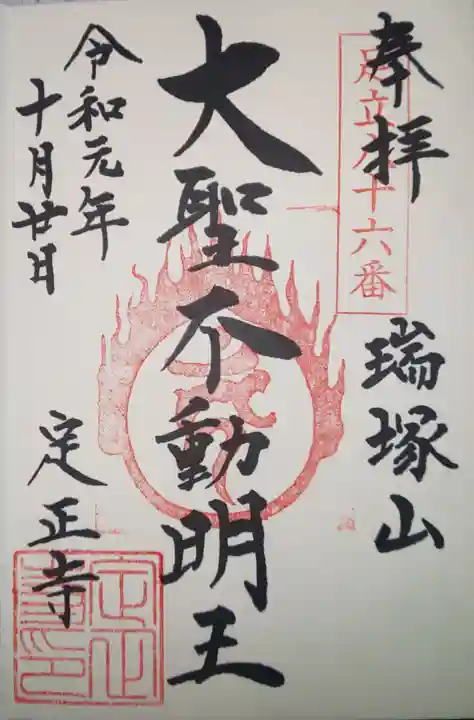 奉拝
瑞塚山
大聖不動明王
令和元年
十月廿日
定正寺